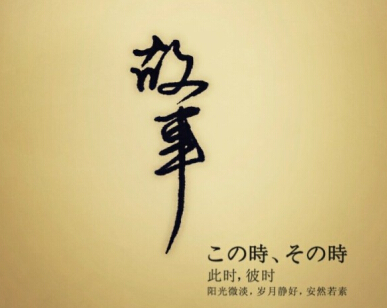 故事
この時、その時
此时，彼时
阳光微淡，岁月静好，安然若素